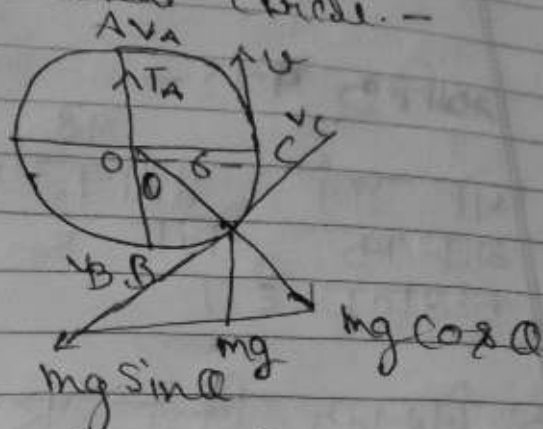 Circle. -
A VA
TA
v
O
6
C
VC
θ
VB B
mg Sinθ
mg
mg Cosθ